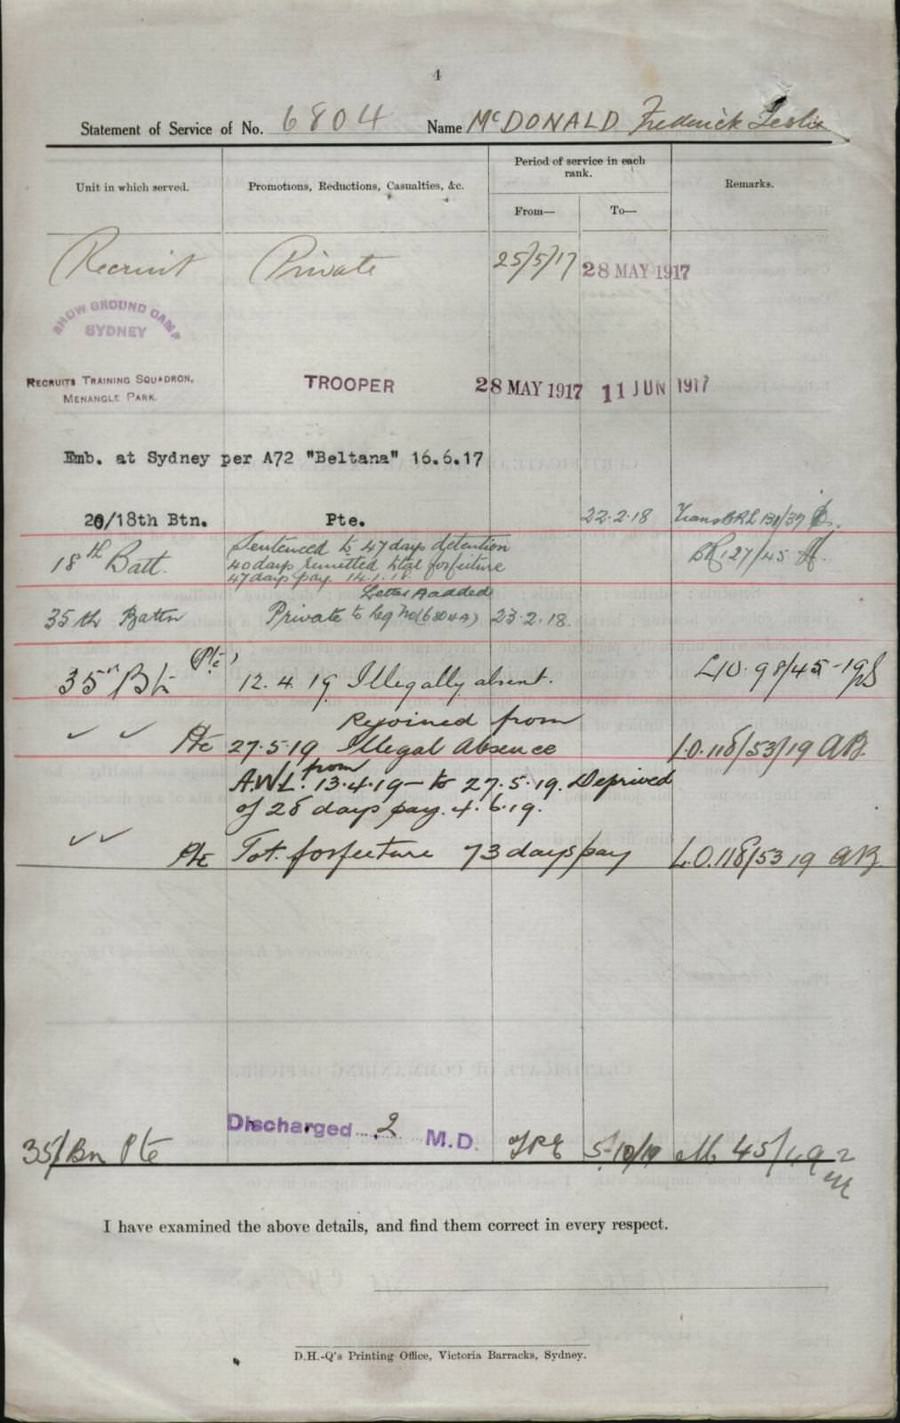 4
Statement of Service of No. 6804 Name McDONALD Frederick Leslie
Unit in which served. Promotions, Reductions, Casualties, &c. Period of service in each rank. Remarks.
From— To—
Recruit Private 25/5/17 28 MAY 1917
SHOW GROUND CAMP
SYDNEY
RECRUITS TRAINING SQUADRON, TROOPER 28 MAY 1917 11 JUN 1917
MENANGLE PARK.
Emb. at Sydney per A72 "Beltana" 16.6.17
20/18th Btn. Pte. 22.2.18
18th Batt. Sentenced to 47 days detention
40 days remitted total forfeiture
47 days pay. 14.1.18
Letter A added
35th Battn Private to Reg No (6804A) 23.2.18.
35th Bn (Pte) 12.4.19 Illegally absent. LIO 98/45-19
✓ ✓ Pte Rejoined from
27.5.19 Illegal Absence L.O.118/53/19 AB.
A.W.L. from 13.4.19 — to 27.5.19. Deprived
of 28 days pay. 4.6.19.
✓ ✓ Pte Tot. forfeiture 73 days pay L.O.118/53 19 AB
35/Bn Pte Discharged 2 M.D. TPE 5-10/19
I have examined the above details, and find them correct in every respect.
D.H.-Q's Printing Office, Victoria Barracks, Sydney.